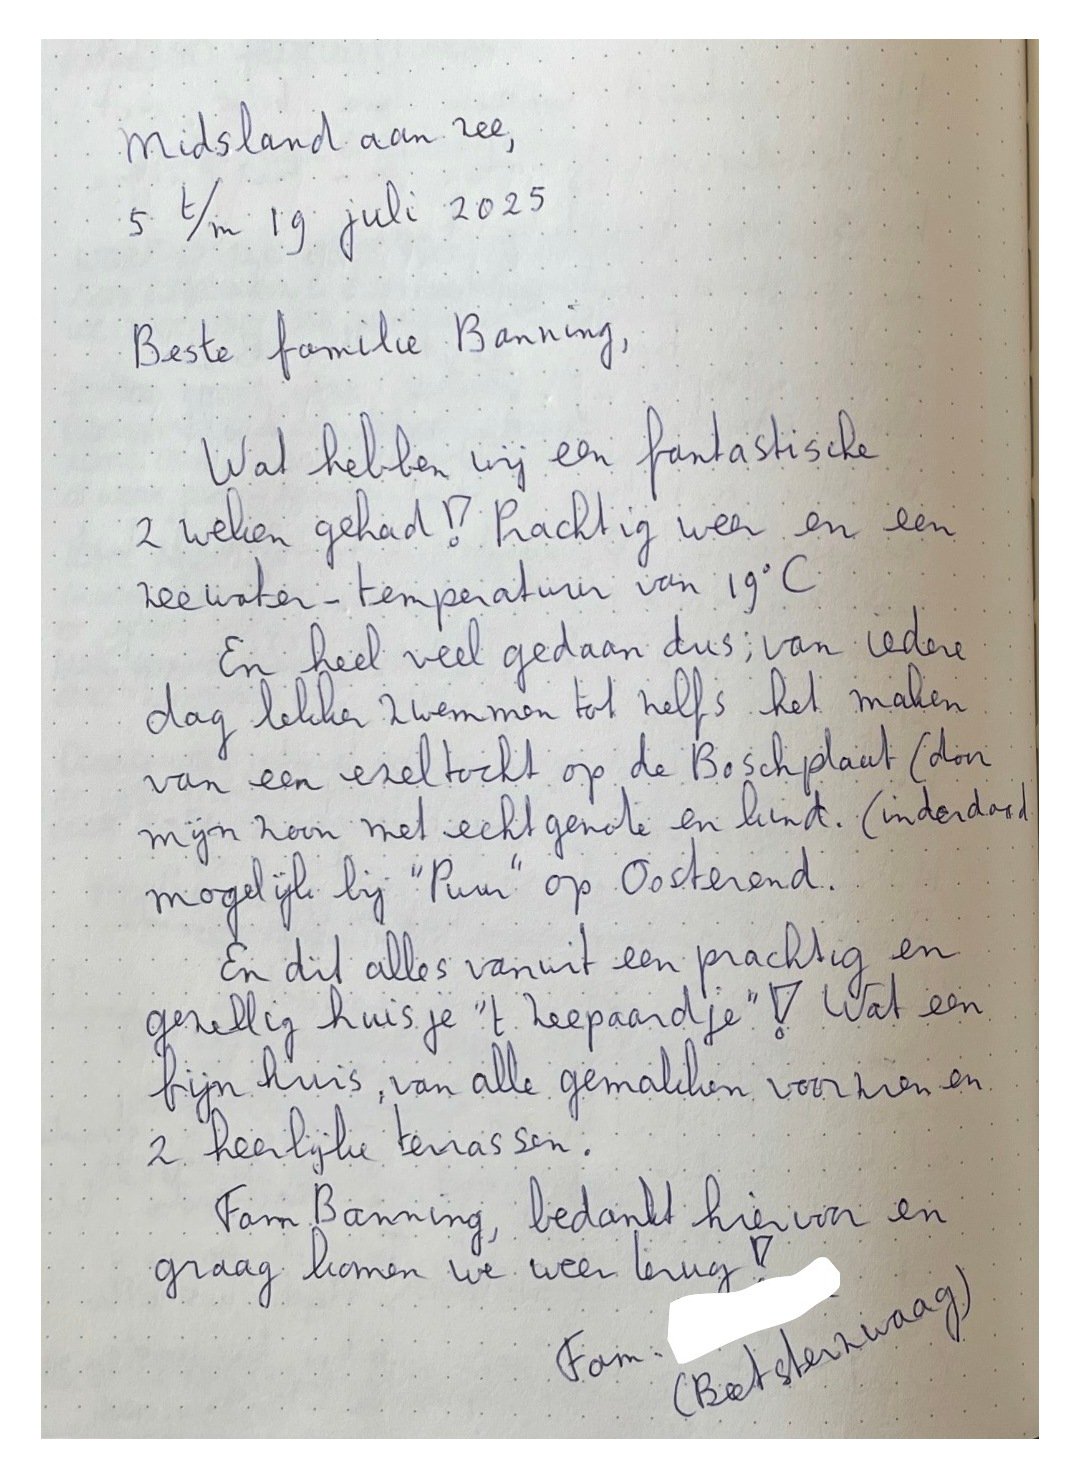 Midsland aan zee,
5 t/m 19 juli 2025
Beste familie Banning,
Wat hebben wij een fantastische
2 weken gehad! Prachtig weer en een
zeewater-temperatuur van 19°C
En heel veel gedaan dus; van iedere
dag lekker zwemmen tot zelfs het maken
van een ezeltocht op de Boschplaat (door
mijn zoon met echtgenote en kind. (inderdaad
mogelijk bij "Puur" op Oosterend.
En dit alles vanuit een prachtig en
gezellig huisje "'t Zeepaardje"! Wat een
fijn huis, van alle gemakken voorzien en
2 heerlijke terrassen.
Fam Banning, bedankt hiervoor en
graag komen we weer terug!
Fam.
(Beetsterzwaag)